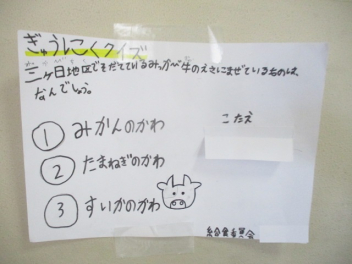 ぎゅうにくクイズ
三ヶ日地区でそだてているみっかび牛のえさにまぜているものは、
なんでしょう。
① みかんのかわ
② たまねぎのかわ
③ すいかのかわ
こたえ
給食委員会